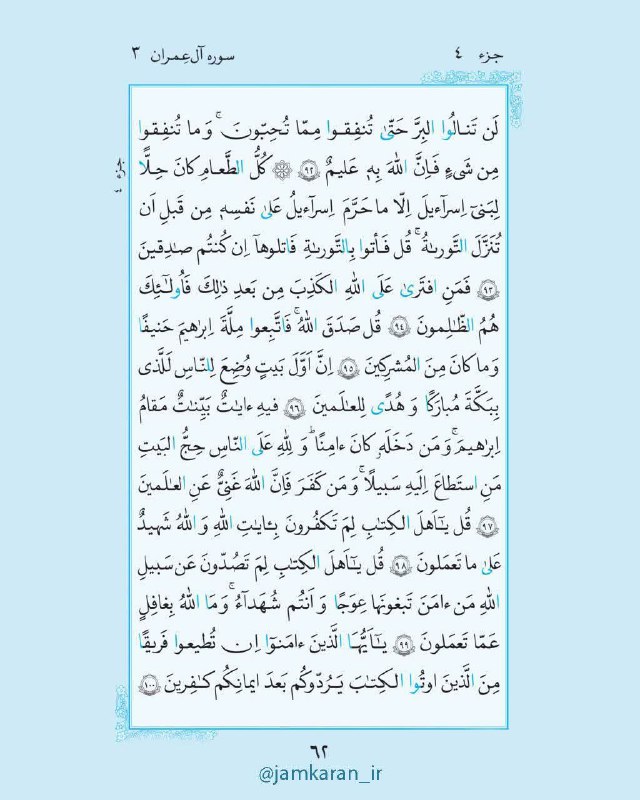 جزء ٤
سوره آل‌عِمران ٣
لَن تَنالُوا البِرَّ حَتّىٰ تُنفِقوا مِمّا تُحِبّونَ ۚ وَما تُنفِقوا
مِن شَىءٍ فَاِنَّ اللّٰهَ بِهٖ عَليمٌ ﴿٩٢﴾ ۞ كُلُّ الطَّعامِ كانَ حِلًّا
جزء ٤
لِبَنىٓ اِسرآءيلَ اِلّا ما حَرَّمَ اِسرآءيلُ عَلىٰ نَفسِهٖ مِن قَبلِ اَن
تُنَزَّلَ التَّورىٰةُ ۚ قُل فَأتوا بِالتَّورىٰةِ فَاتلوهآ اِن كُنتُم صٰدِقينَ
﴿٩٣﴾ فَمَنِ افتَرىٰ عَلَى اللّٰهِ الكَذِبَ مِن بَعدِ ذٰلِكَ فَاُولٰٓئِكَ
هُمُ الظّٰلِمونَ ﴿٩٤﴾ قُل صَدَقَ اللّٰهُ ۚ فَاتَّبِعوا مِلَّةَ اِبرٰهيمَ حَنيفًا
وَما كانَ مِنَ المُشرِكينَ ﴿٩٥﴾ اِنَّ اَوَّلَ بَيتٍ وُضِعَ لِلنّاسِ لَلَّذى
بِبَكَّةَ مُبارَكًا وَهُدًى لِلعٰلَمينَ ﴿٩٦﴾ فيهِ ءايٰتٌ بَيِّنٰتٌ مَقامُ
اِبرٰهيمَ ۚ وَمَن دَخَلَهٗ كانَ ءامِنًا ۗ وَلِلّٰهِ عَلَى النّاسِ حِجُّ البَيتِ
مَنِ استَطاعَ اِلَيهِ سَبيلًا ۚ وَمَن كَفَرَ فَاِنَّ اللّٰهَ غَنِىٌّ عَنِ العٰلَمينَ
﴿٩٧﴾ قُل يٰٓاَهلَ الكِتٰبِ لِمَ تَكفُرونَ بِـٔايٰتِ اللّٰهِ وَاللّٰهُ شَهيدٌ
عَلىٰ ما تَعمَلونَ ﴿٩٨﴾ قُل يٰٓاَهلَ الكِتٰبِ لِمَ تَصُدّونَ عَن سَبيلِ
اللّٰهِ مَن ءامَنَ تَبغونَها عِوَجًا وَاَنتُم شُهَدآءُ ۚ وَمَا اللّٰهُ بِغافِلٍ
عَمّا تَعمَلونَ ﴿٩٩﴾ يٰٓاَيُّهَا الَّذينَ ءامَنوٓا اِن تُطيعوا فَريقًا
مِنَ الَّذينَ اوتُوا الكِتٰبَ يَرُدّوكُم بَعدَ ايمانِكُم كٰفِرينَ ﴿١٠٠﴾
٦٢
@jamkaran_ir